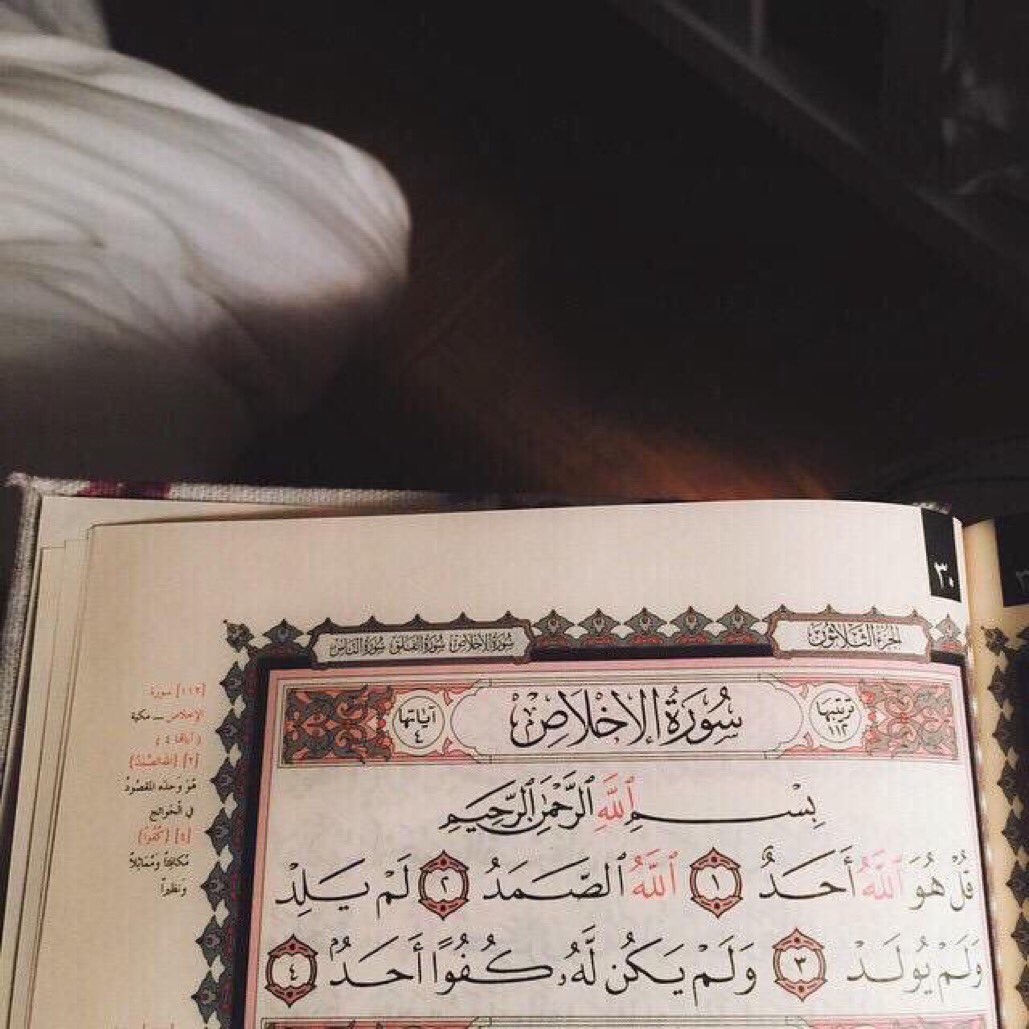 ٣٠
سورة الإخلاص سورة الفلق سورة الناس
الجزء الثلاثون
ترتيبها ١١٢
سُورَةُ الإِخْلَاصِ
آياتها ٤
بِسْمِ ٱللَّهِ ٱلرَّحْمَٰنِ ٱلرَّحِيمِ
قُلْ هُوَ ٱللَّهُ أَحَدٌ ١ ٱللَّهُ ٱلصَّمَدُ ٢ لَمْ يَلِدْ
وَلَمْ يُولَدْ ٣ وَلَمْ يَكُن لَّهُۥ كُفُوًا أَحَدٌۢ ٤
[١١٢] سورة
الإخلاص ــ مكية
( آياتها ٤ )
[٢] {الله الصَّمَدُ}
هُوَ وَحْدَه المَقْصُودُ
في الحَوائِجِ
[٤] {كُفُواً}
مُكَافِئاً وَمُمَاثِلاً
وَنَظِيراً